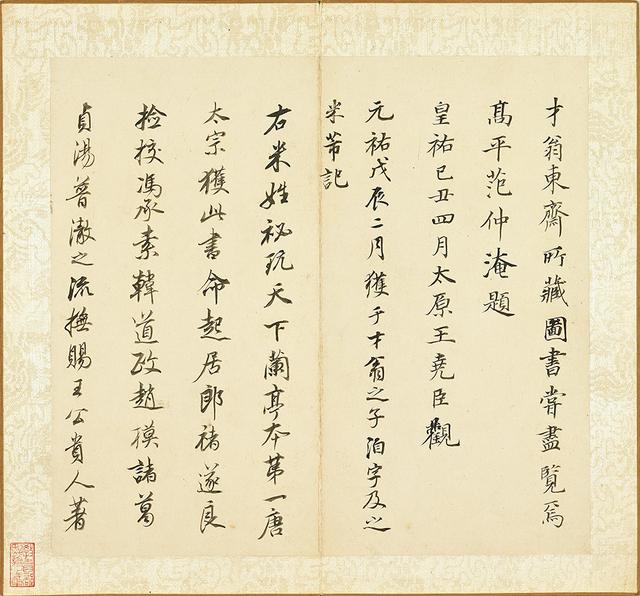 才翁東齋所藏圖書甞盡覽焉
髙平范仲淹題
皇祐己丑四月太原王堯臣觀
元祐戊辰二月獲于才翁之子洎字及之
米芾記
右米姓祕玩天下蘭亭本第一唐
太宗獲此書命起居郎褚遂良
撿校馮承素韓道政趙模諸葛
貞湯普澈之流摸賜王公貴人著